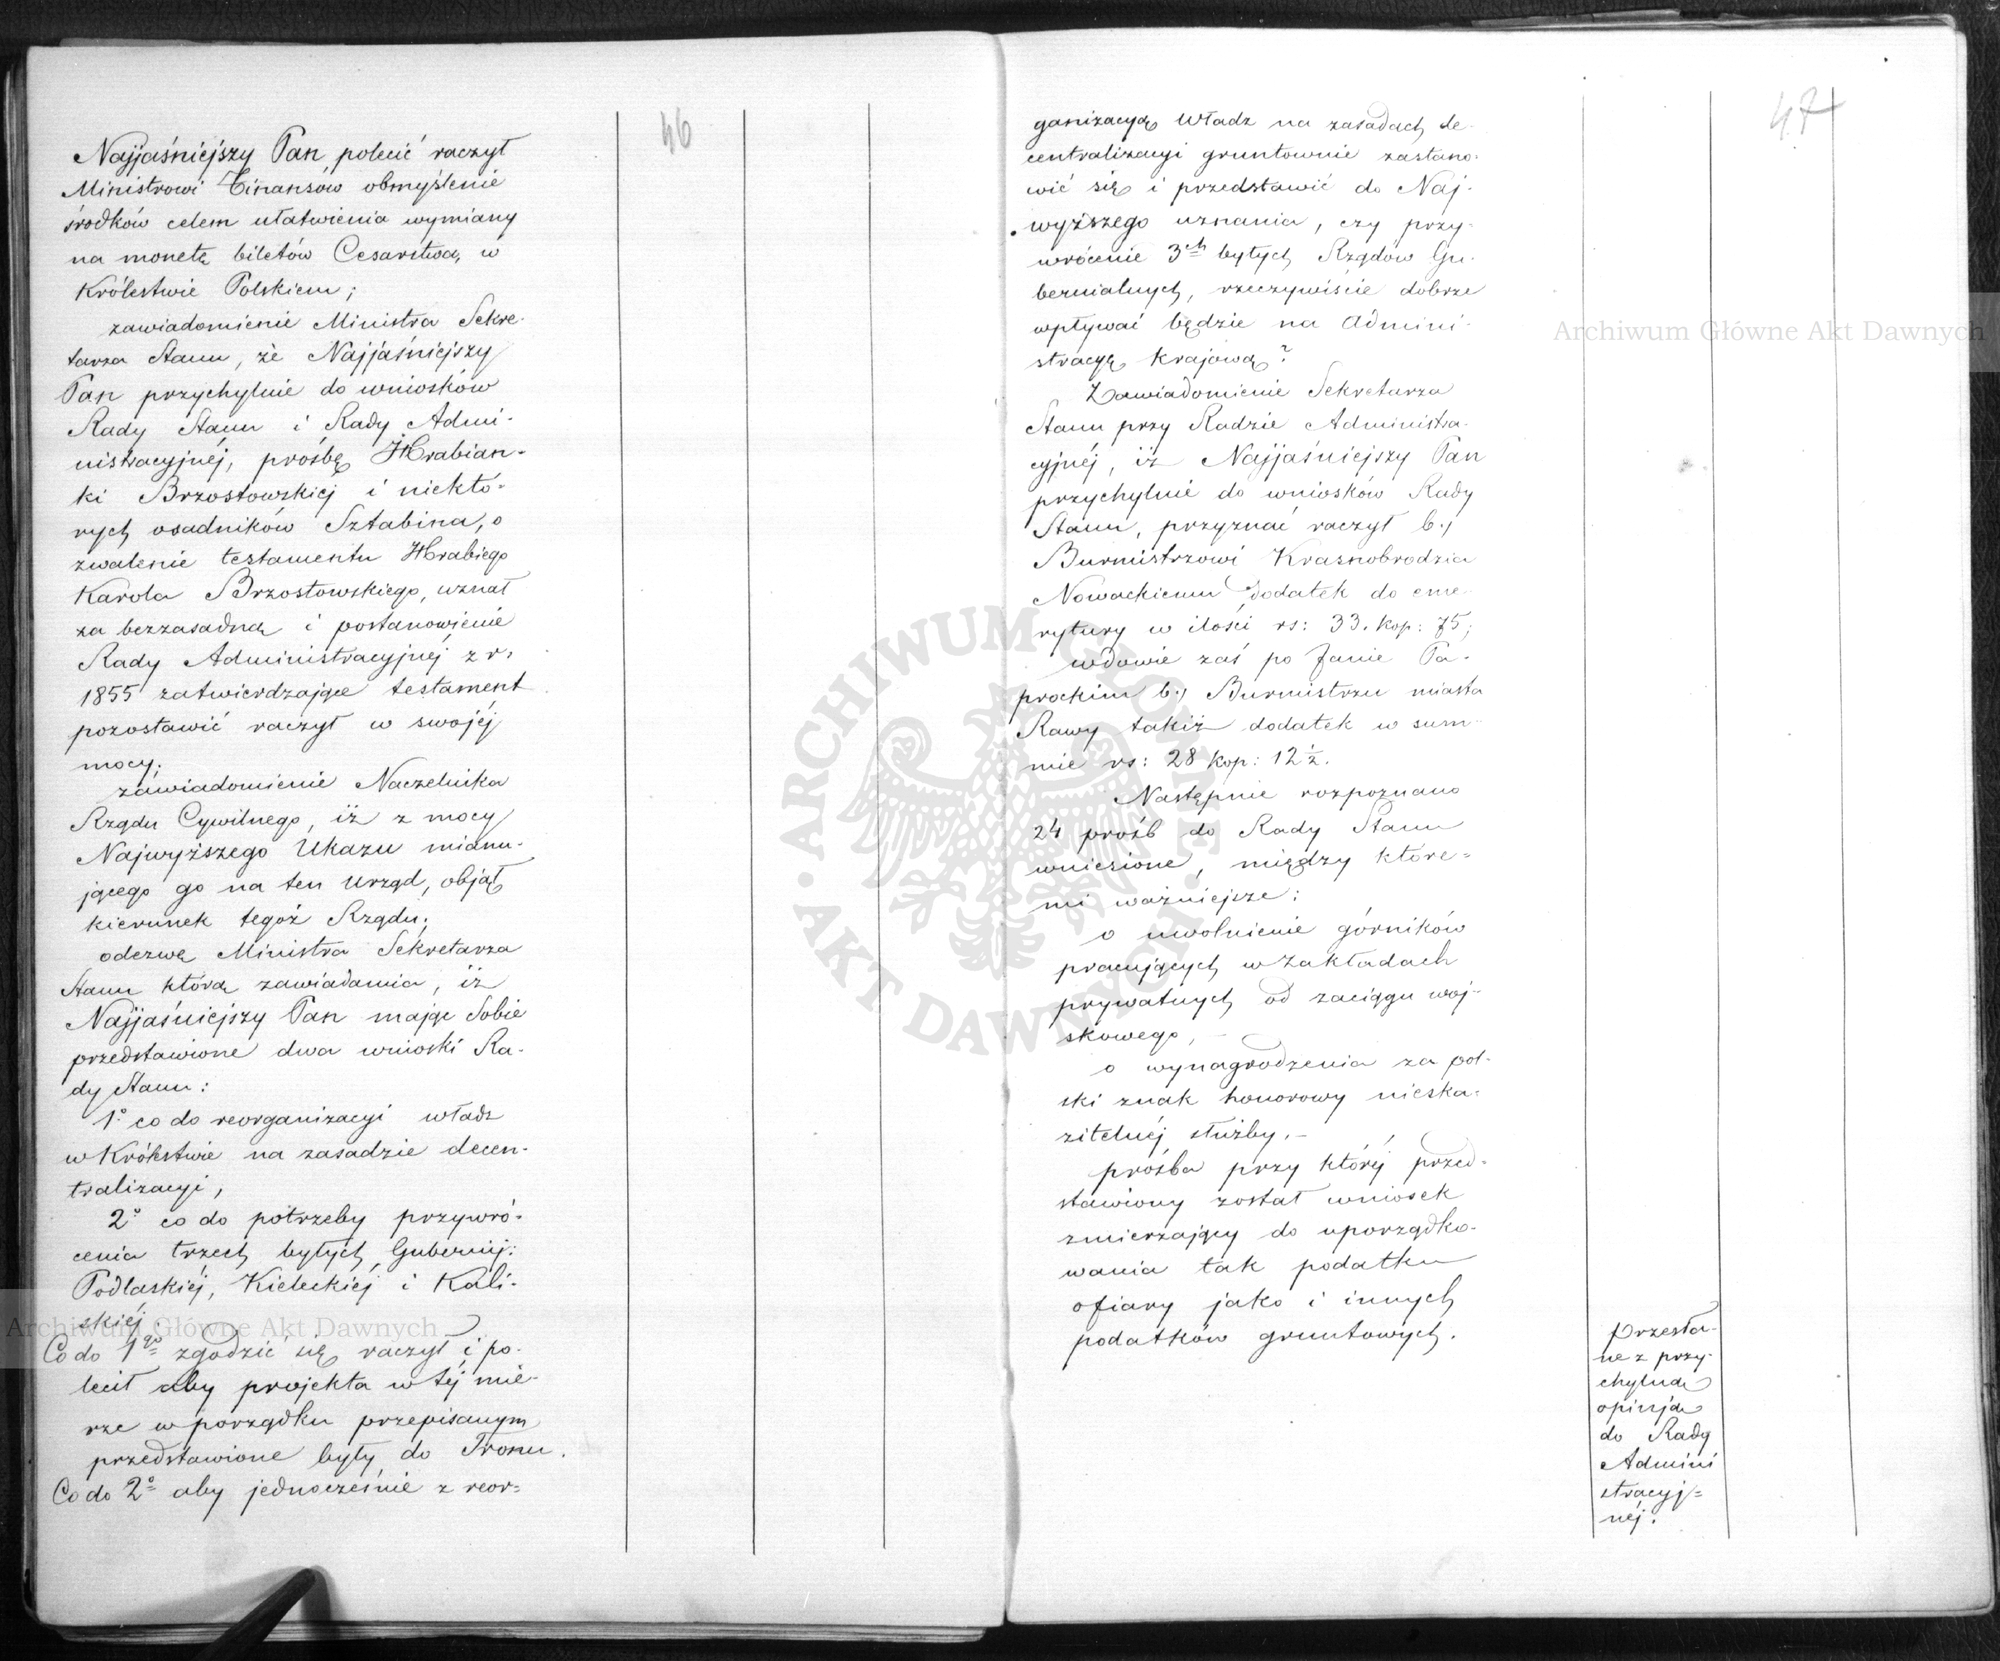 46
Najjaśniejszy Pan polecić raczył
Ministrowi Finansów obmyślenie
środków celem ułatwienia wymiany
na monetę biletów Cesarstwa, w
Królestwie Polskiem;
zawiadomienie Ministra Sekre-
tarza Stanu, że Najjaśniejszy
Pan przychylnie do wniosków
Rady Stanu i Rady Admi-
nistracyjnéj, prośbę Hrabian-
ki Brzostowskiej i niektó-
rych osadników Sztabina, o
zwalenie testamentu Hrabiego
Karola Brzostowskiego, uznał
za bezzasadną i postanowienie
Rady Administracyjnéj z r.
1855 zatwierdzające testament
pozostawić raczył w swojéj
mocy.
zawiadomienie Naczelnika
Rządu Cywilnego, iż z mocy
Najwyższego Ukazu mianu-
jącego go na ten urząd, objął
kierunek tegoż Rządu;
odezwę Ministra Sekretarza
Stanu którą zawiadamia, iż
Najjaśniejszy Pan mając Sobie
przedstawione dwa wnioski Ra-
dy Stanu:
1º co do reorganizacyi władz
w Królestwie na zasadzie decen-
tralizacyi,
2º co do potrzeby przywró-
cenia trzech byłych Gubernij:
Podlaskiéj, Kieleckiéj i Kali-
skiéj
Co do 1go zgodzić się raczył i po-
lecił aby projekta w téj mie-
rze w porządku przepisanym
przedstawione były do Tronu.
Co do 2º aby jednocześnie z reor-
47
ganizacyą władz na zasadach de-
centralizacyi gruntownie zastano-
wić się i przedstawić do Naj-
wyższego uznania, czy przy-
wrócenie 3ch byłych Rządów Gu-
bernialnych, rzeczywiście dobrze
wpływać będzie na Admini-
stracyę krajową?
Zawiadomienie Sekretarza
Stanu przy Radzie Administra-
cyjnéj, iż Najjaśniejszy Pan
przychylnie do wniosków Rady
Stanu, przyznać raczył b.
Burmistrzowi Krasnobrodzia
Nowackiemu dodatek do eme-
rytury w ilości rs: 33. kop: 75;
wdowie zaś po Janie Pa-
prockim b. Burmistrzu miasta
Rawy takiż dodatek w sum-
mie rs: 28 kop: 12½.
Następnie rozpoznano
24 prośb do Rady Stanu
wniesione, między które-
mi ważniejsze:
o uwolnienie górników
pracujących w zakładach
prywatnych od zaciągu woj-
skowego, –
o wynagrodzenia za pol-
ski znak honorowy nieska-
zitelnéj służby. –
prośba przy któréj przed-
stawiony został wniosek
zmierzający do uporządko-
wania tak podatku
ofiary jako i innych
podatków gruntowych.
Przesła-
ne z przy-
chylną
opinją
do Rady
Admini
stracyj=
néj.
Archiwum Główne Akt Dawnych
Archiwum Główne Akt Dawnych
· ARCHIWUM GŁÓWNE · AKT DAWNYCH